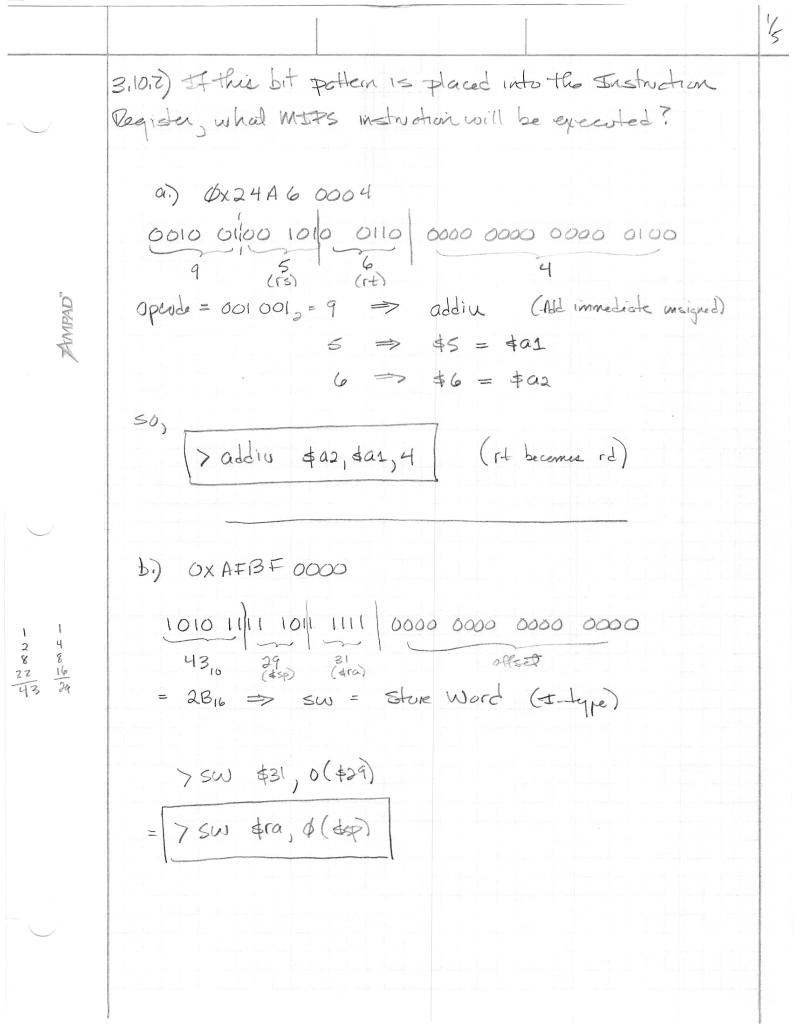 1/5
3.10.2) If this bit pattern is placed into the Instruction
Register, what MIPS instruction will be executed?
a.) 0x24A6 0004
0010 01|00 101|0 0110 | 0000 0000 0000 0100
9 5 6 4
(rs) (rt)
Opcode = 001 001₂ = 9 ⇒ addiu (Add immediate unsigned)
5 ⇒ $5 = $a1
6 ⇒ $6 = $a2
so,
> addiu $a2, $a1, 4 (rt becomes rd)
AMPAD™
b.) 0xAFBF 0000
1010 11|11 101|1 1111 | 0000 0000 0000 0000
43₁₀ 29 31 offset
($sp) ($ra)
= 2B₁₆ ⇒ sw = Store Word (I-type)
1 1
2 4
8 8
22 16
43 29
> sw $31, 0($29)
= > sw $ra, 0($sp)